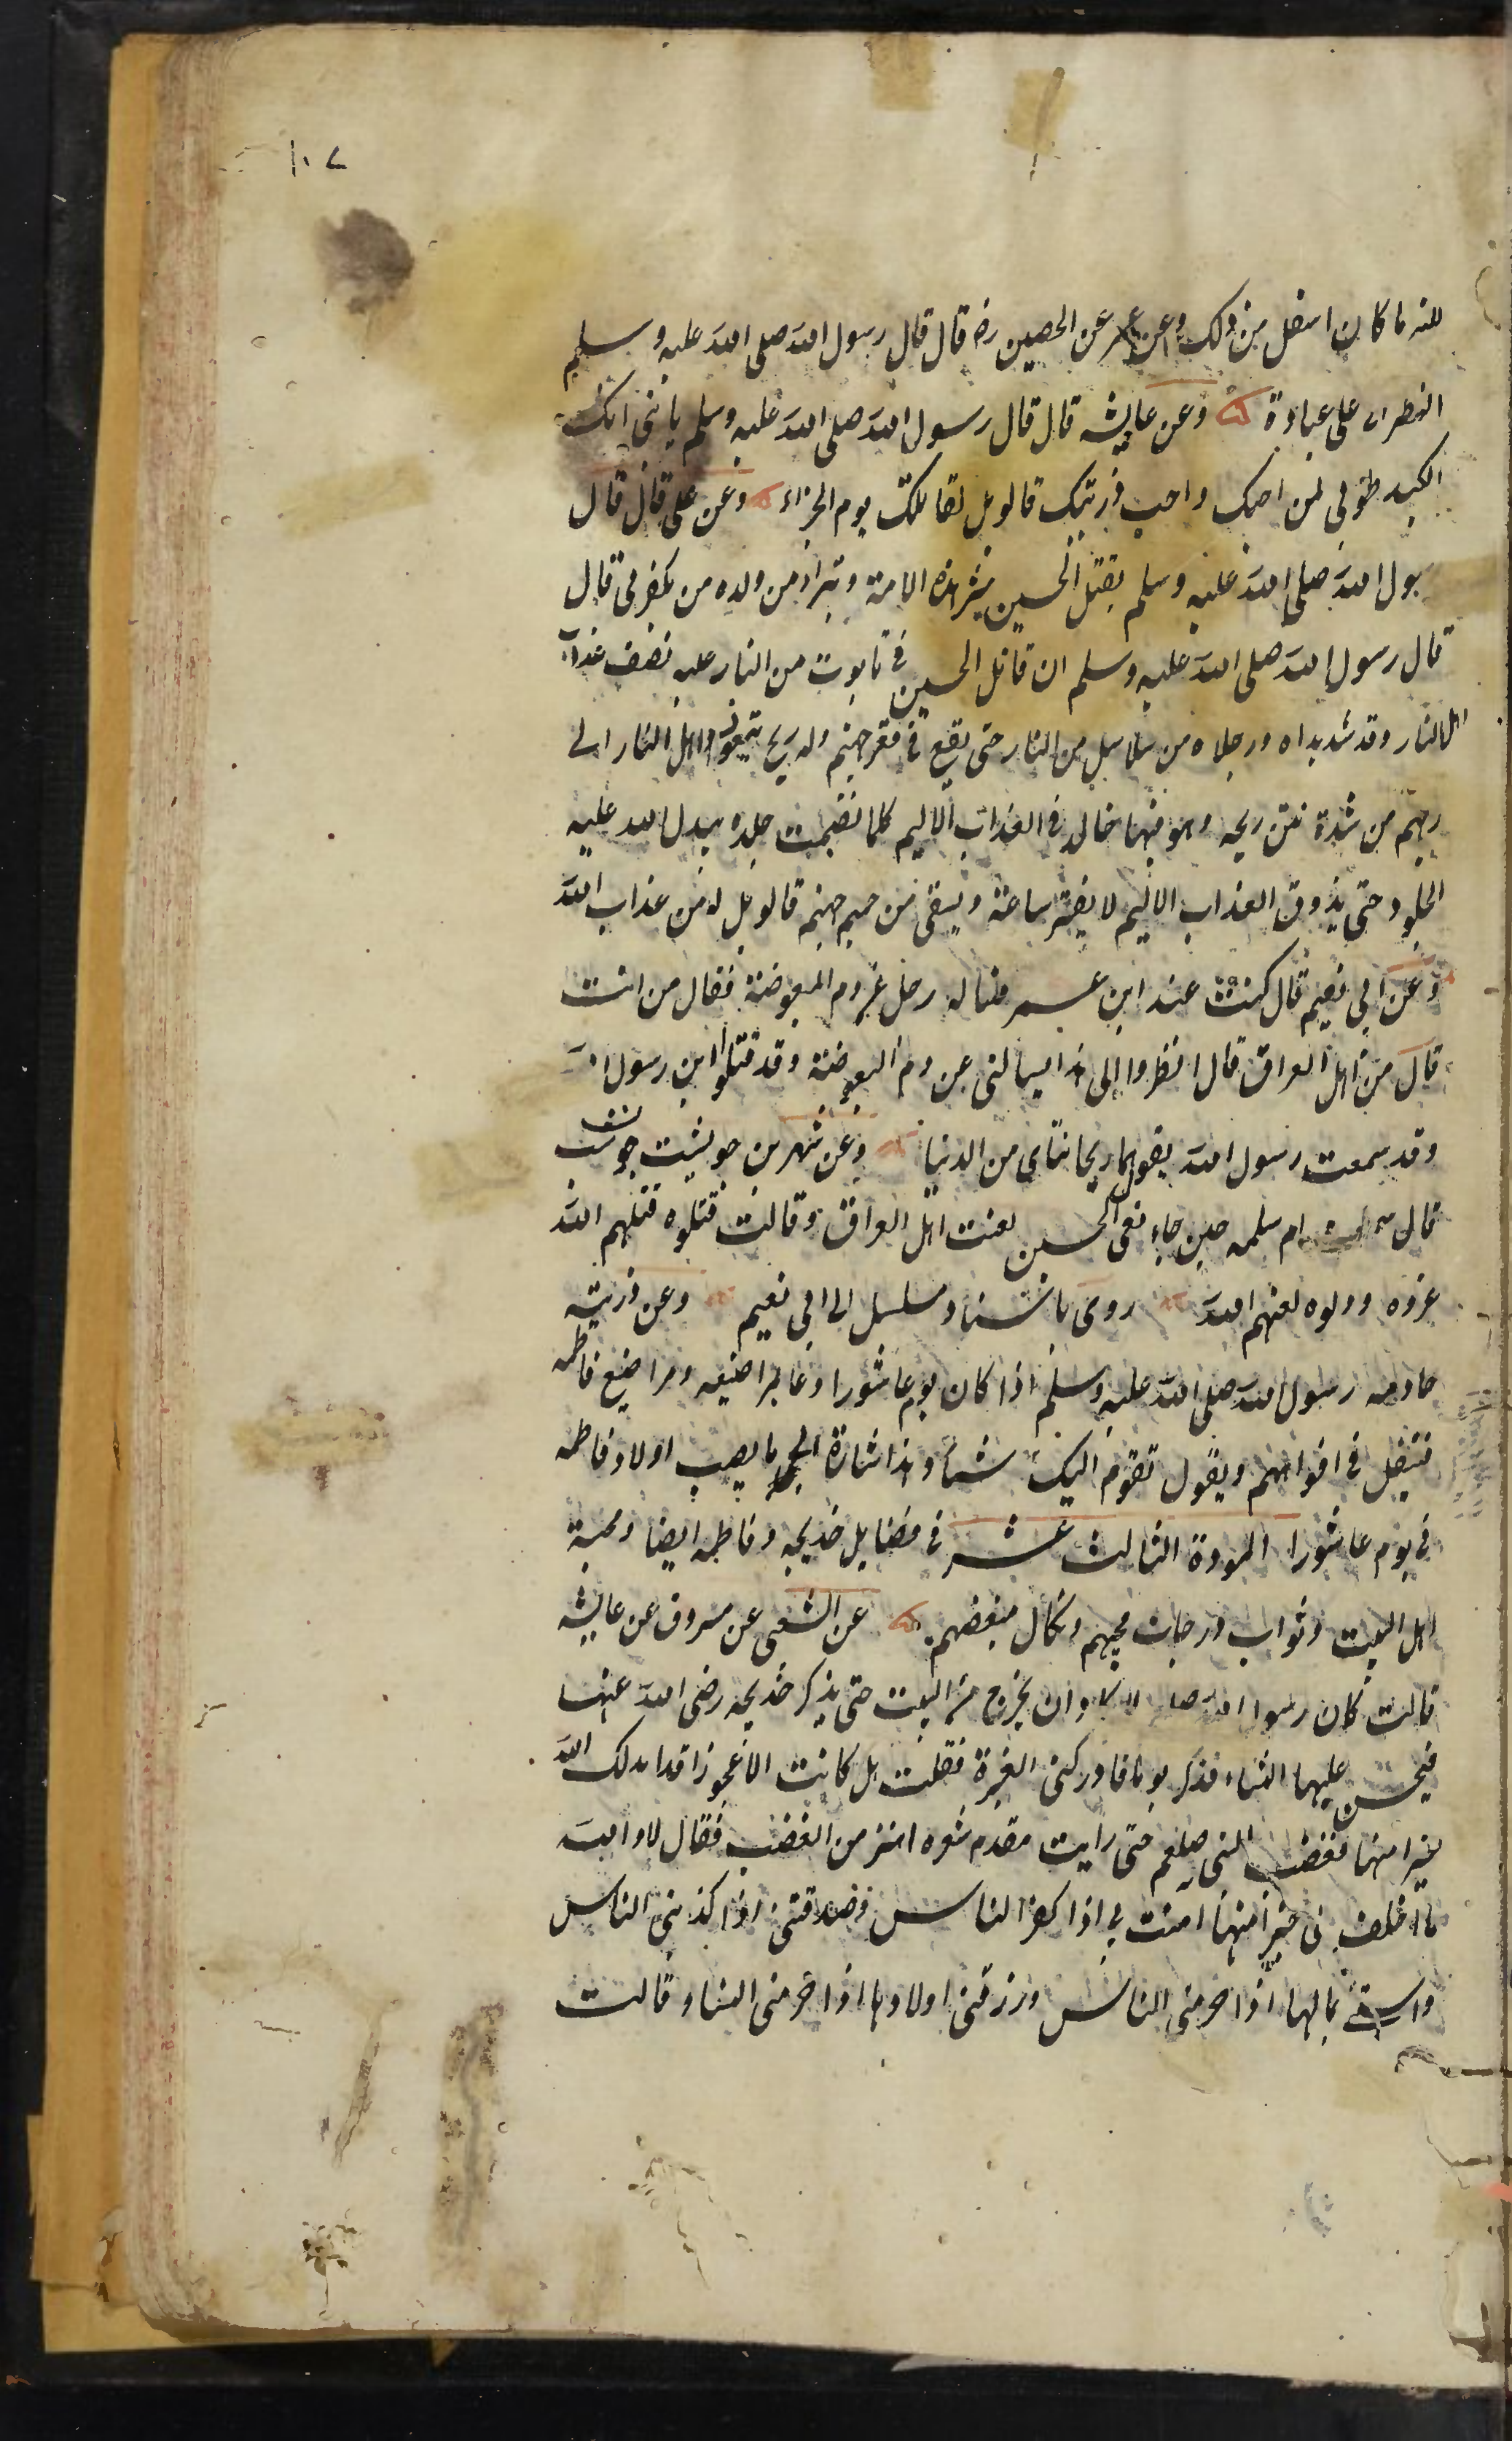 ١٠٧
للنه ما كان افضل من ذلك وعن عمر عن الحصين رض قال قال رسول الله صلى الله عليه وسلم
النظر الى على عبادة وعن عايشه قال قال رسول الله صلى الله عليه وسلم يا بنى انك
الكبد طوبى لمن احبك واحب ذريتك قالويل لقاتلك يوم الجزاء وعن على قال قال
سول الله صلى الله عليه وسلم يقتل الحسين شر هذه الامة وتبرا من ولده من يكفر بى قال
قال رسول الله صلى الله عليه وسلم ان قاتل الحسين فى تابوت من النار عليه نصف عذاب
اهل النار وقد شد يداه ورجلاه من سلاسل من النار حتى يقع فى قعر جهنم وله ريح يتعوذ اهل النار الى
ربهم من شدة نتن ريحه وهو فيها خالد فى العذاب الاليم كلما نضجت جلده يبدل الله عليه
الجلود حتى يذوق العذاب الاليم لا يفتر ساعة ويسقى من حميم جهنم قالويل له من عذاب الله
وعن ابى نعيم قال كنت عند ابن عمر فساله رجل عن دم البعوضة فقال من انت
قال من اهل العراق قال انظروا الى هذا يسالنى عن دم البعوضة وقد قتلوا ابن رسول الله
وقد سمعت رسول الله يقول هما ريحانتاى من الدنيا وعن شهر بن حويشت حوشب
قال سمعت ام سلمه حين جاء نعى الحسين لعنت اهل العراق وقالت قتلوه قتلهم الله
غروه وذلوه لعنهم الله روى باسناد مسلسل الى ابى نعيم وعن ذريته
خادمه رسول الله صلى الله عليه وسلم اذا كان يوم عاشورا دعا لمراضيعه ومراضيع فاطمه
فيتفل فى افواههم ويقول تقوم اليك شيأ وهذا اشارة الى ما يصيب اولاد فاطمه
فى يوم عاشورا المودة الثالث عشر فى فضايل خديجه وفاطمه ايضا ومحبة
اهل البيت وثواب درجات محبهم ونكال مبغضهم. عن الشعبى عن مسروق عن عايشه
قالت كان رسول الله صلم لا يكاد ان يخرج من البيت حتى يذكر خديجه رضى الله عنها
فيحسن عليها الثناء فذكر يوما فادركنى الغيرة فقلت هل كانت الا عجوزا قد ابدلك الله
خيرا منها فغضب النبى صلعم حتى رايت مقدم شعره اهتز من الغضب فقال لا والله
ما اخلف لى خيرا منها امنت بى اذا كفر الناس وصدقتنى اذا كذبنى الناس
واستى بمالها اذا حرمنى الناس ورزقنى اولادها اذا حرمنى النساء قالت